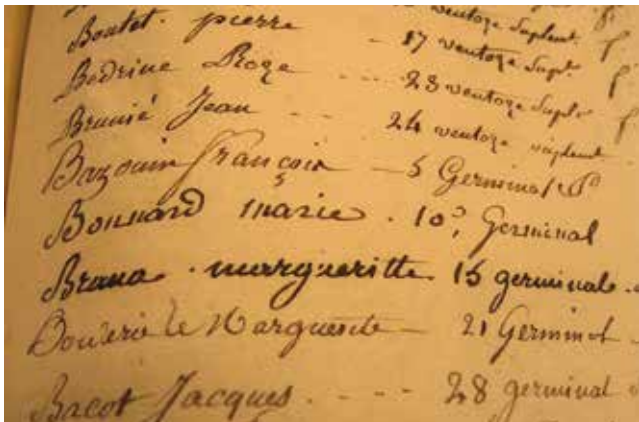 Boutet. pierre - 17 ventoze Suplt.
Bedrine Roze - - - 23 ventoze Suplt
Brunié Jean - - - 24 ventoze
Bazouin françois - 5 Germinal
Bonnard marie . 10 Germinal
Brana . margueritte. 15 germinale.
le Marguerite - 21 Germinal -
Bacot Jacques. - - - - 28 germinal